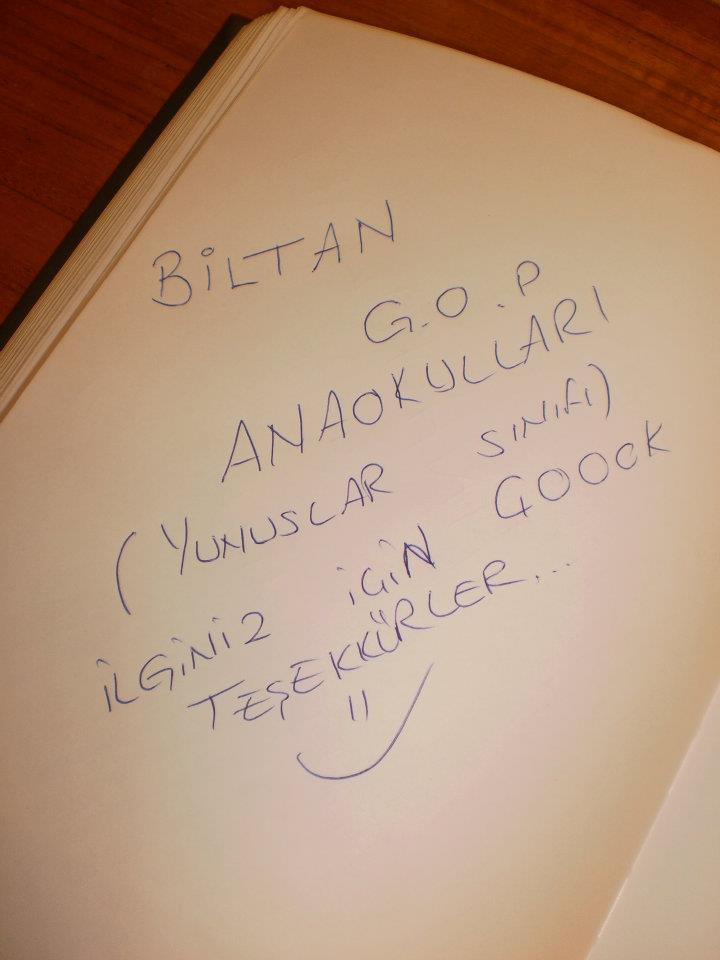 BİLTAN
G.O.P
ANAOKULLARI
(YUNUSLAR SINIFI)
İLGİNİZ İÇİN GOOCK
TEŞEKKÜRLER...